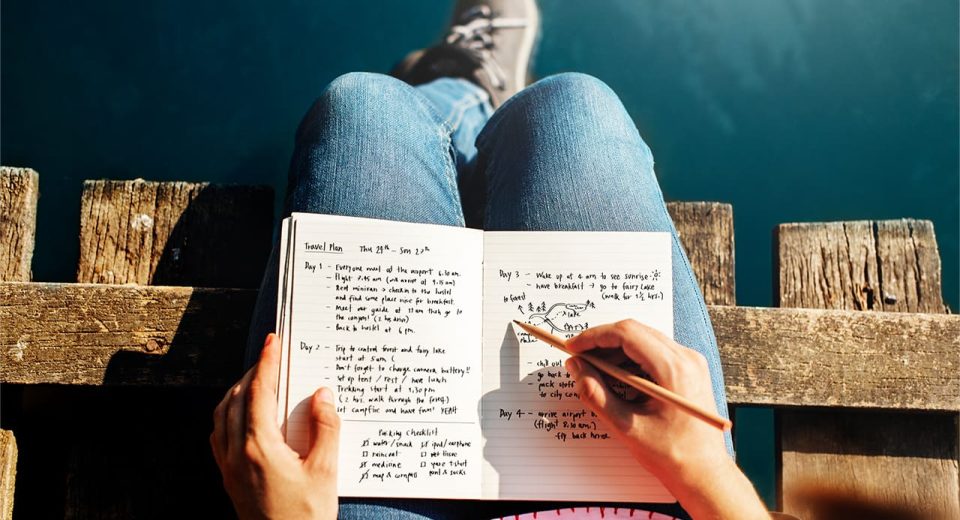 Travel Plan Thu 29th - Sun
Day 1 - Everyone meet at the airport 6.30 am.
- flight 7.45 am (will arrive at 9.15 am)
- Rent minivan → check in to the hostel
and find some place nice for breakfast.
- Meet our guide at 11 am then go to
the canyon! (2 hrs drive)
- Back to hostel at 6 pm.
Day 2 - Trip to central forest and fairy lake
start at 5 am (
- Don't forget to charge camera battery!!
- Set up tent / Rest / have lunch
- Trekking start at 1.30 pm
(2 hrs. walk through the forest)
- set campfire and have fun! YEAH
Packing Checklist
water / snack
ipod / earphone
raincoat
wet tissue
medicine
t-shirt
map & compass
pant & socks
Day 3 - Wake up at 4 am to see sunrise
- have breakfast → go to fairy lake
(walk for 1½ hrs.)
to forest
lake
- chill out
go back to
- pack
to city
Day 4 - arrive airport
(flight 8.30 am.)
fly back home